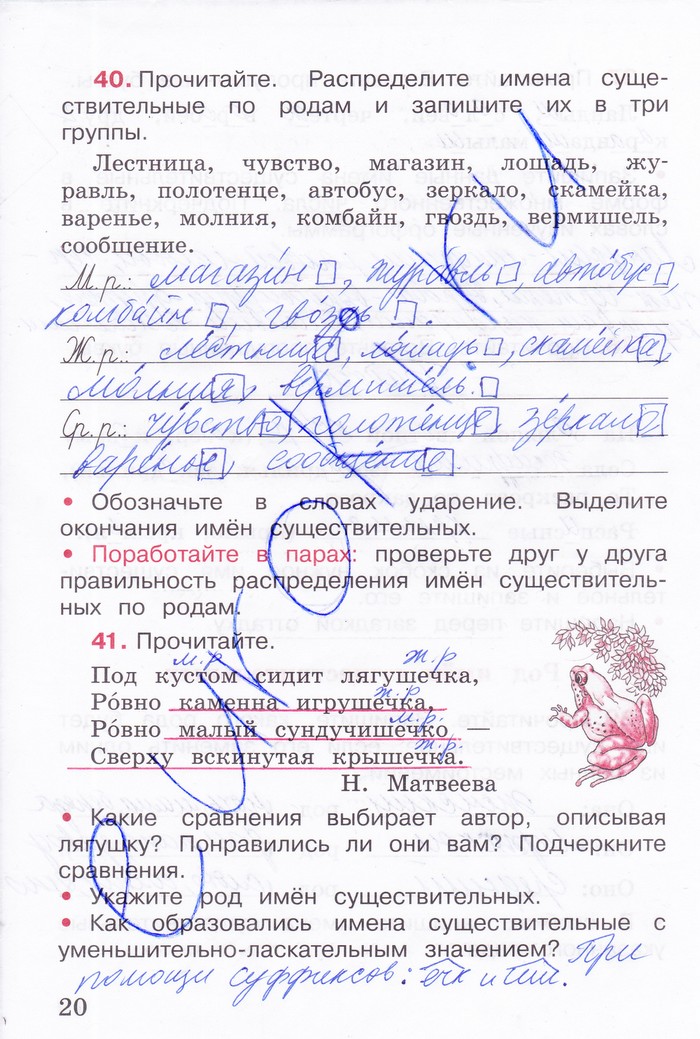 40. Прочитайте. Распределите имена суще-
ствительные по родам и запишите их в три
группы.
Лестница, чувство, магазин, лошадь, жу-
равль, полотенце, автобус, зеркало, скамейка,
варенье, молния, комбайн, гвоздь, вермишель,
сообщение.
М.р.: магазин, жура́вль, авто́бус,
комба́йн, гвоздь.
Ж.р.: ле́стница, ло́шадь, скаме́йка,
мо́лния, вермише́ль.
Ср.р.: чу́вство, полоте́нце, зе́ркало,
варе́нье, сообще́ние.
• Обозначьте в словах ударение. Выделите
окончания имён существительных.
• Поработайте в парах: проверьте друг у друга
правильность распределения имён существитель-
ных по родам.
41. Прочитайте.
м.р ж.р
Под кустом сидит лягушечка,
ж.р
Ро́вно каменна игрушечка,
м.р
Ро́вно малый сундучишечко —
ж.р
Сверху вскинутая крышечка.
Н. Матвеева
• Какие сравнения выбирает автор, описывая
лягушку? Понравились ли они вам? Подчеркните
сравнения.
• Укажите род имён существительных.
• Как образовались имена существительные с
уменьшительно-ласкательным значением? При
помощи суффиксов: ечк и
20